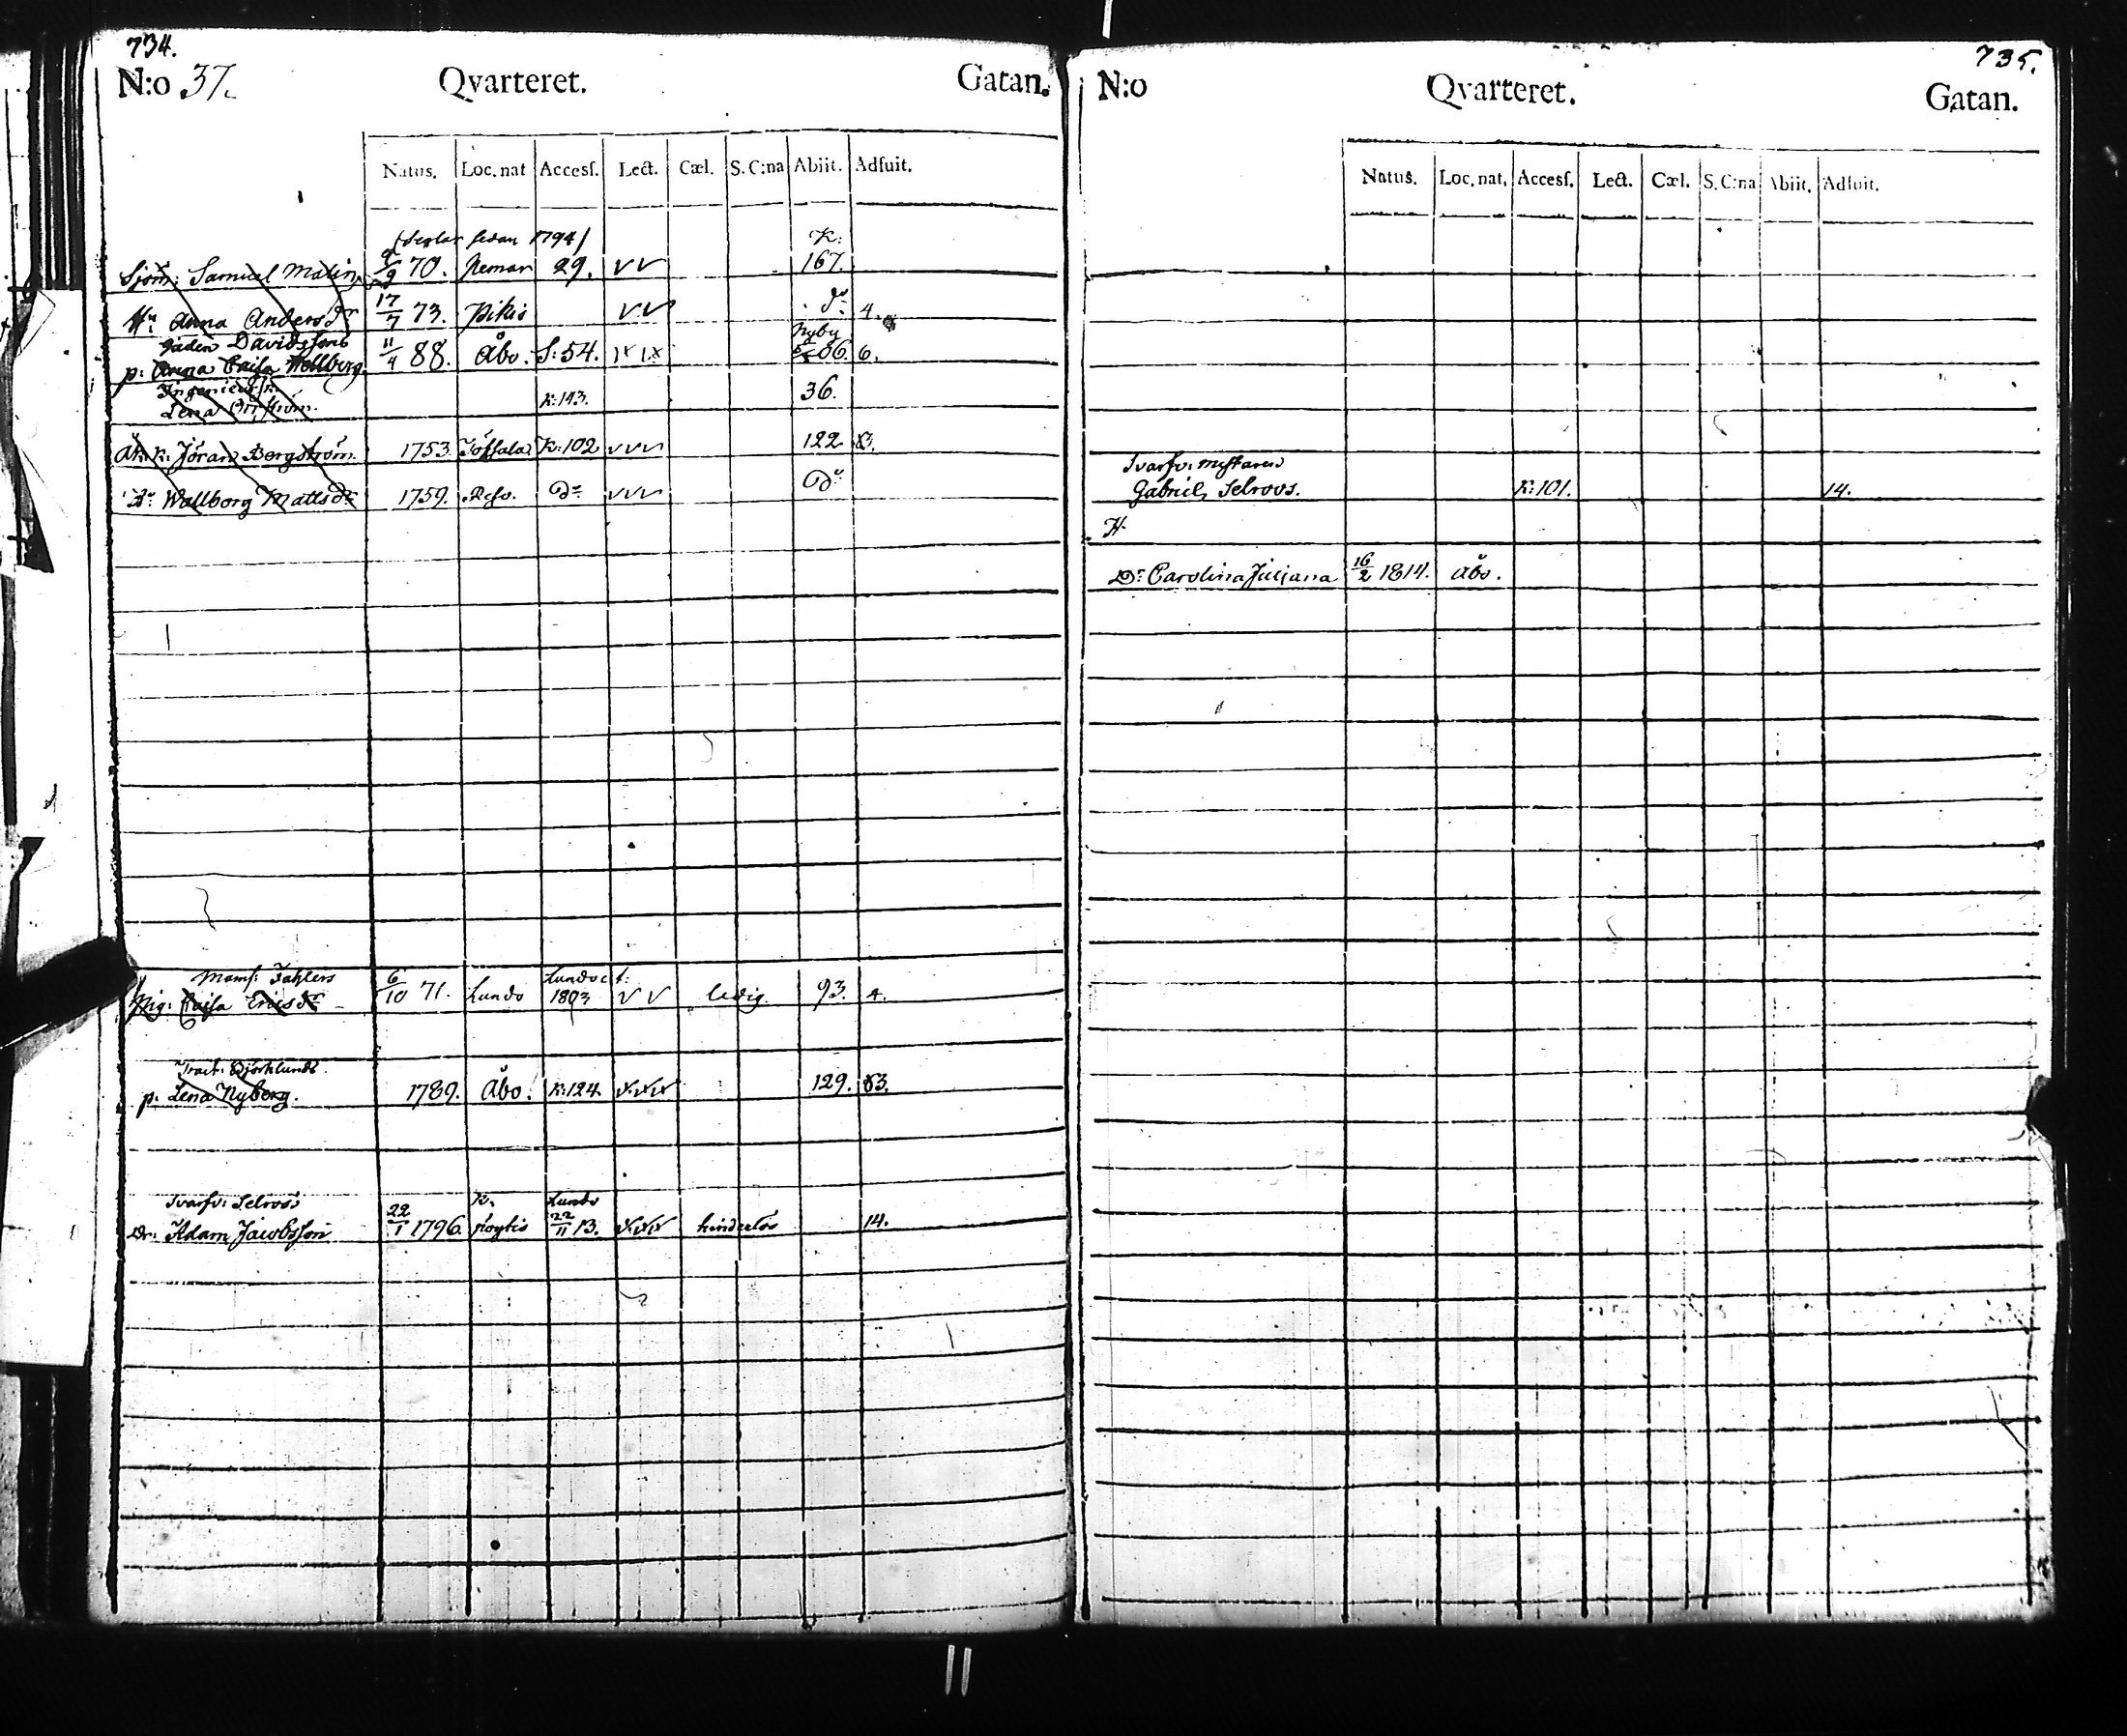 734.
N:o 37. Qvarteret. Gatan.
Natus. Loc. nat Accesſ. Lect. Cæl. S. C:na Abiit. Adſuit.
(Seglar sedan 1794) K:
Sjöm: Samuel Malin 9/9 70. Pemar 29. 167.
H:u Anna Andersdr 17/7 73. Pikis do 4.
Davidssons Nyby
p: Anna Caisa Wellberg 11/4 88. Åbo. S: 54. 06. 6.
Lena K: 143. 36.
Åk.k: Jöran Bergström. 1753. K: 102 122 8.
Wallborg Mattsdr 1759. do do
Mams: Fahlers Lundo
Pig: Caisa Ericsdr 6/10 71. Lundo 1803 ledig. 93. 4.
Tract: Björklunds
p. Lena Nyberg. 1789. Åbo. K: 124. 129. 83.
Svarfv: Selroos K. Lundo
Dr: Adam Jacobsson 22/1 1796. Pöytis 22/11 13. hinderlös 14.
735.
N:o Qvarteret. Gatan.
Natus. Loc. nat. Accesſ. Lect. Cæl. S. C:na Abiit. Adſuit.
Svarfv: mästaren
Gabriel Selroos. K: 101. 14.
H.
Dr Carolina Juliana 16/2 1814. Åbo.